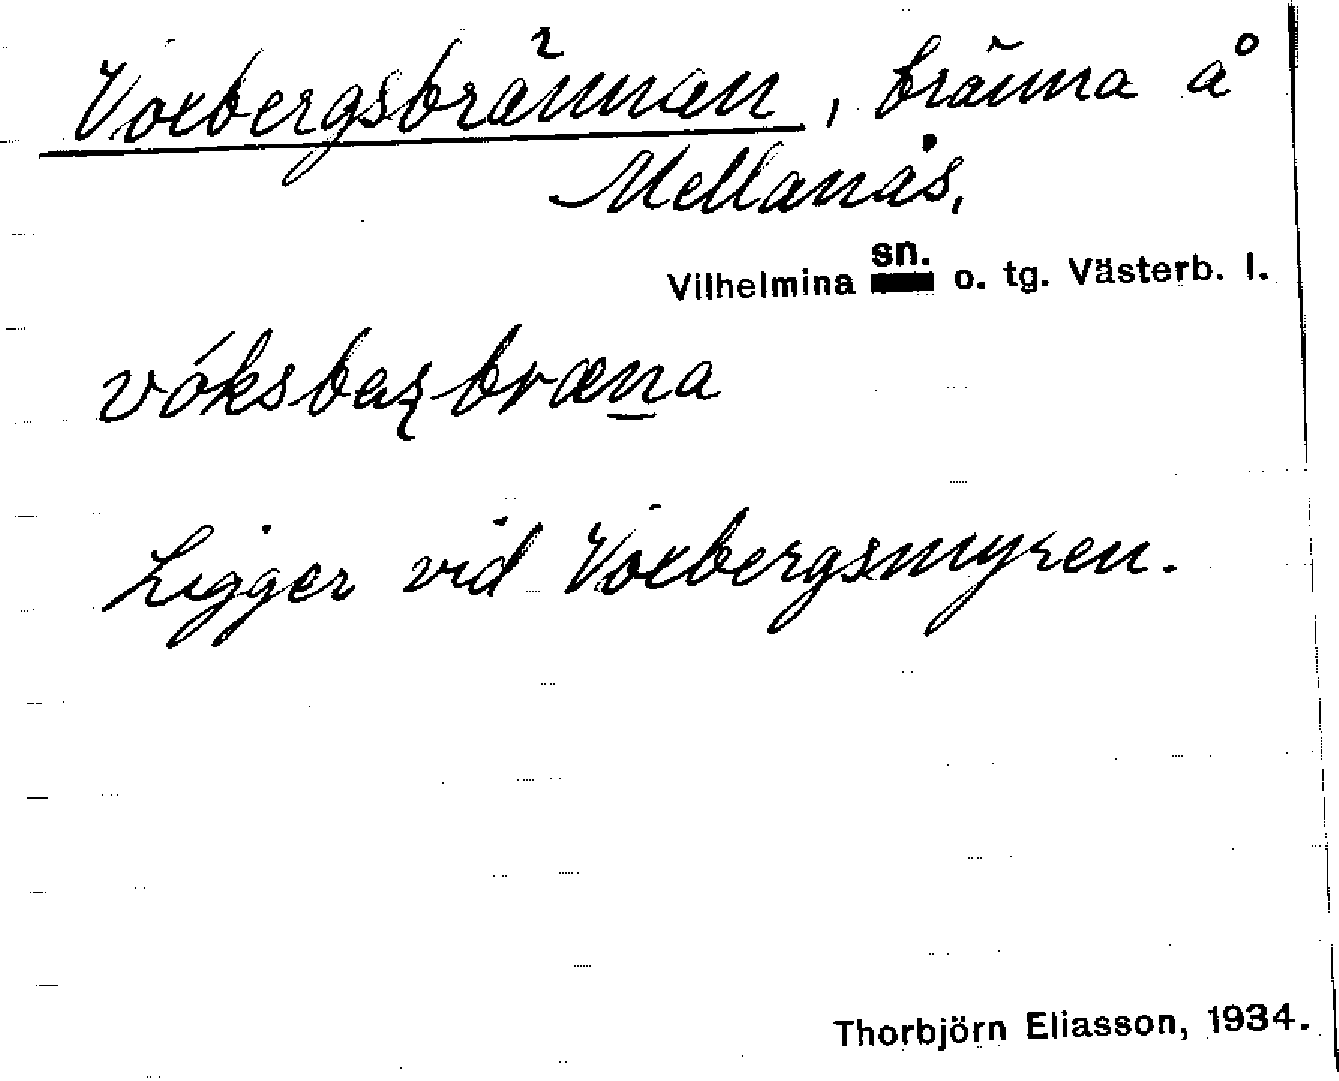 Voxbergsbrännan, bränna å
Mellanås,
Vilhelmina sn. o. tg. Västerb. l.
vóksbaʐbræna
Ligger vid Voxbergsmyren.
Thorbjörn Eliasson, 1934.